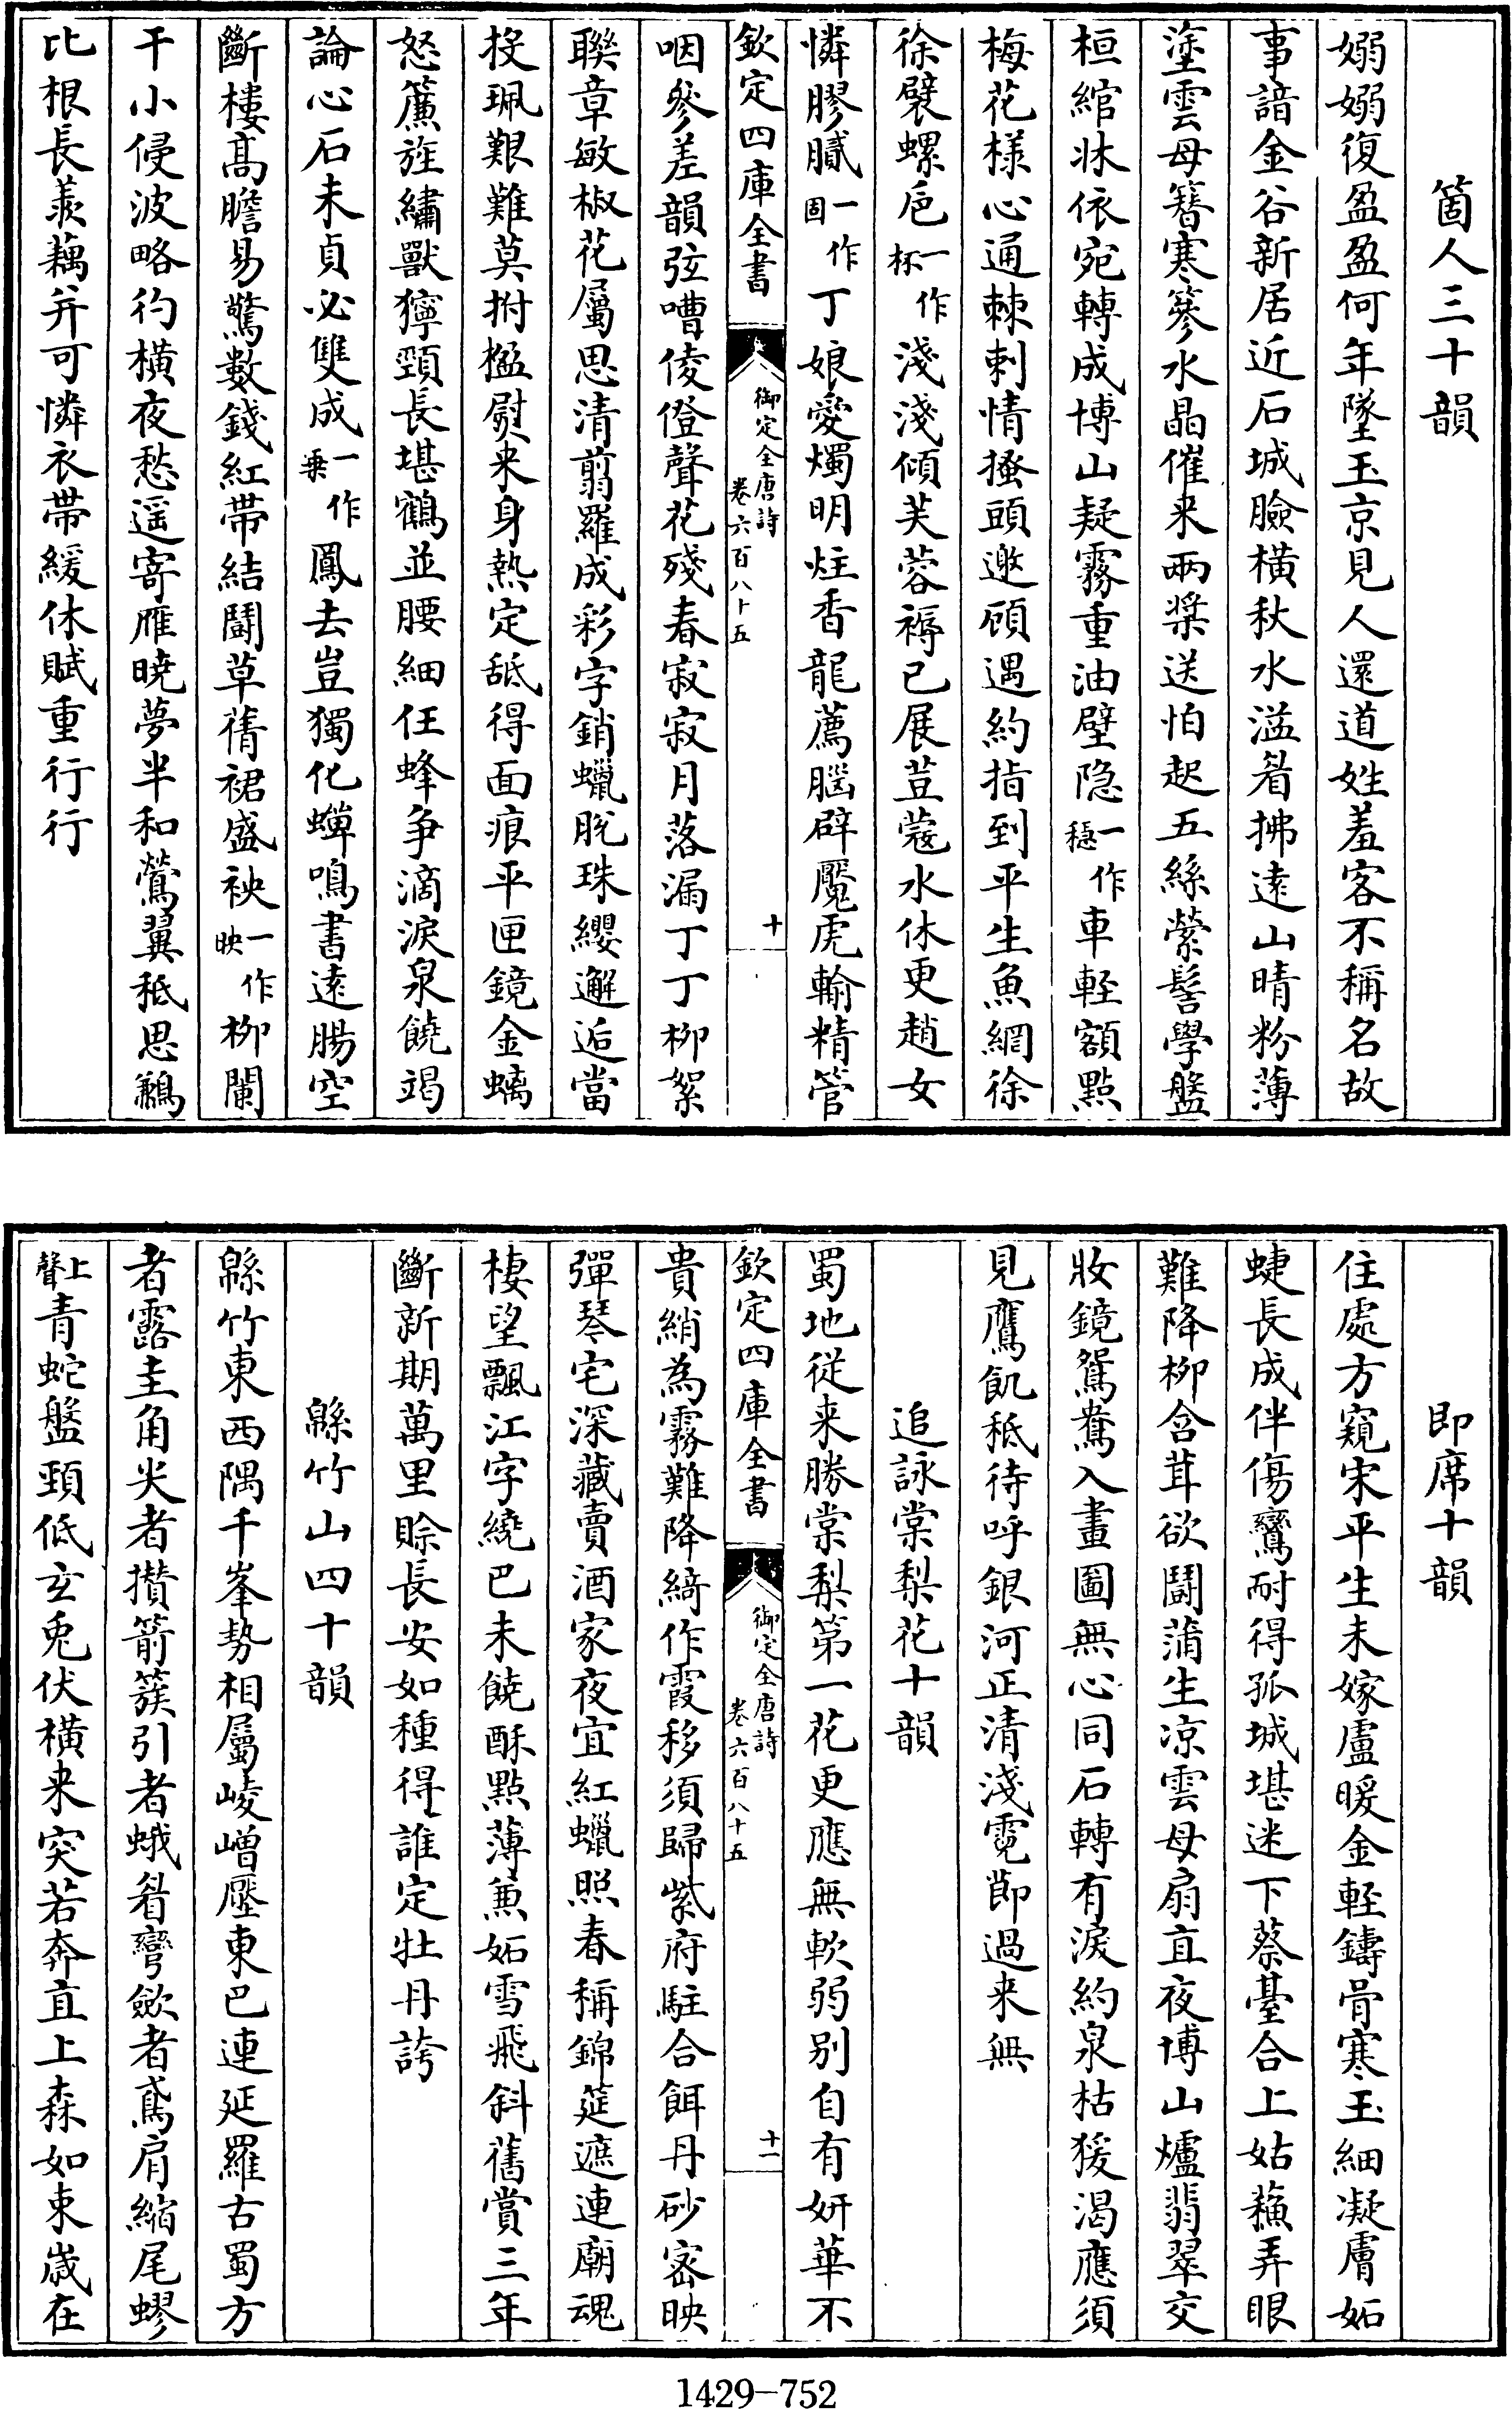 箇人三十韻
嫋嫋復盈盈何年墜玉京見人還道姓羞客不稱名故
事諳金谷新居近石城臉橫秋水溢眉拂遠山晴粉薄
塗雲母簪寒篸水晶催来兩槳送怕起五絲縈髻學盤
桓綰牀依宛轉成博山疑霧重油壁隐一作穩車輕額點
梅花様心通棘刺情搔頭邀顧遇約指到平生魚網徐
徐襞螺巵一作杯淺淺傾芙蓉褥已展荳蔻水休更趙女
憐膠膩一作固丁娘愛燭明炷香龍薦腦辟魘虎輸精管
欽定四庫全書
御定全唐詩
卷六百八十五
十
咽參差韻弦嘈倰僜聲花殘春寂寂月落漏丁丁柳絮
聯章敏椒花屬思清翦羅成彩字銷蠟脫珠纓邂逅當
投珮艱難莫拊楹熨来身熱定舐得面痕平匣鏡金螭
怒簾旌繡獸獰頸長堪鶴並腰細任蜂爭滴淚泉饒竭
論心石未貞必雙成一作乗鳳去豈獨化蟬鳴書遠腸空
斷樓髙膽易驚數錢紅帶結鬭草蒨裙盛袂一作映柳闌
干小侵波略彴橫夜愁遥寄雁曉夢半和鶯翼秪思鶼
比根長羨藕并可憐衣帶緩休賦重行行
即席十韻
住處方窺宋平生未嫁盧暖金輕鑄骨寒玉細凝膚妬
蜨長成伴傷鸞耐得孤城堪迷下蔡臺合上姑蘓弄眼
難降柳含茸欲鬭蒲生凉雲母扇直夜博山爐翡翠交
妝鏡鴛鴦入畫圖無心同石轉有淚約泉枯猨渴應須
見鷹飢秪待呼銀河正清淺霓節過来無
追詠棠梨花十韻
蜀地從来勝棠梨第一花更應無軟弱別自有妍華不
欽定四庫全書
御定全唐詩
卷六百八十五
十一
貴綃為霧難降綺作霞移須歸紫府駐合餌丹砂宻映
彈琴宅深藏賣酒家夜宜紅蠟照春稱錦筵遮連廟魂
棲望飄江字繞巴未饒酥點薄兼妬雪飛斜舊賞三年
斷新期萬里賒長安如種得誰定牡丹誇
緜竹山四十韻
緜竹東西隅千峯勢相屬崚嶒壓東巴連延羅古蜀方
者露圭角尖者攢箭簇引者蛾眉彎斂者鳶肩縮尾蟉
上聲青蛇盤頸低玄兎伏橫来突若奔直上森如束嵗在
1429-752